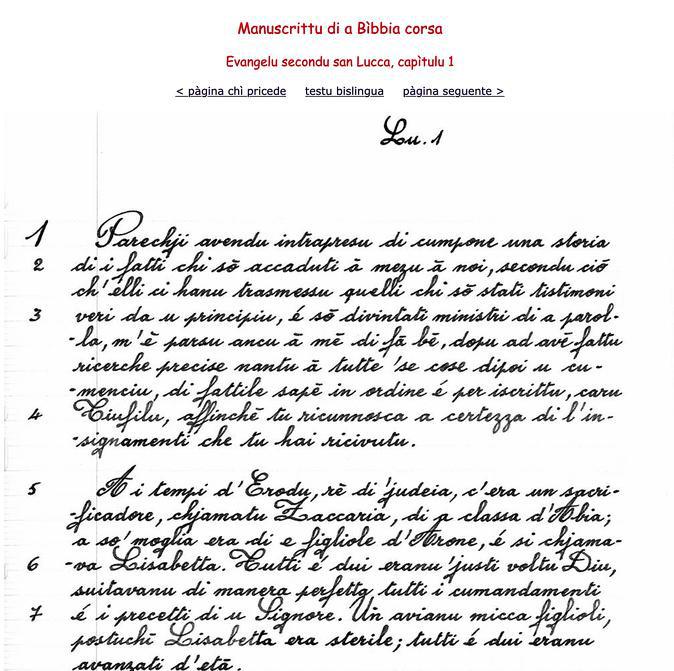 Manuscrittu di a Bìbbia corsa
Evangelu secondu san Lucca, capìtulu 1
< pàgina chì pricede testu bislingua pàgina seguente >
Lu. 1
1 Parechji avendu intrapresu di cumpone una storia
2 di i fatti chi sō accaduti ā mezu ā noi, secondu ciō
ch'élli ci hanu trasmessu quelli chi sō stati tistimoni
3 veri da u principiu, é sō divintati ministri di a parol-
-la, m'ē parsu ancu ā mē di fā bē, dopu ad avē fattu
ricerche precise nantu ā tutte 'se cose dipoi u cu-
-menciu, di fattile sapē in ordine é per iscrittu, caru
4 Tiufilu, affinchē tu ricunnosca a certezza di l'in-
-signamenti che tu hai ricivutu.
5 A i tempi d'Erodu, rē di 'judeia, c'era un sacri-
-ficadore, chjamatu Zaccaria, di a classa d'Abia;
a so' moglia era di e figliole d'Arone, é si chjama-
6 -va Lisabetta. Tutti é dui eranu 'justi voltu Diu,
suitavanu di manera perfetta tutti i cumandamenti
7 é i precetti di u Signore. Un avianu micca figlioli,
postuchī Lisabetta era sterile; tutti é dui eranu
avanzati d'etā.